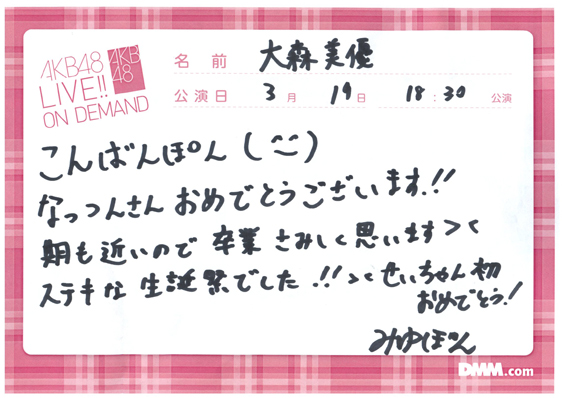 AKB48
LIVE!!
ON DEMAND
AKB
48
名前 大森美優
公演日 3月 19日 18:30 公演
こんばんぽん(^^)
なっつんさん おめでとうございます!!
期も近いので 卒業 さみしく思います><
ステキな 生誕祭でした!! >< せいちゃん初
おめでとう!
みゆぽん
DMM.com